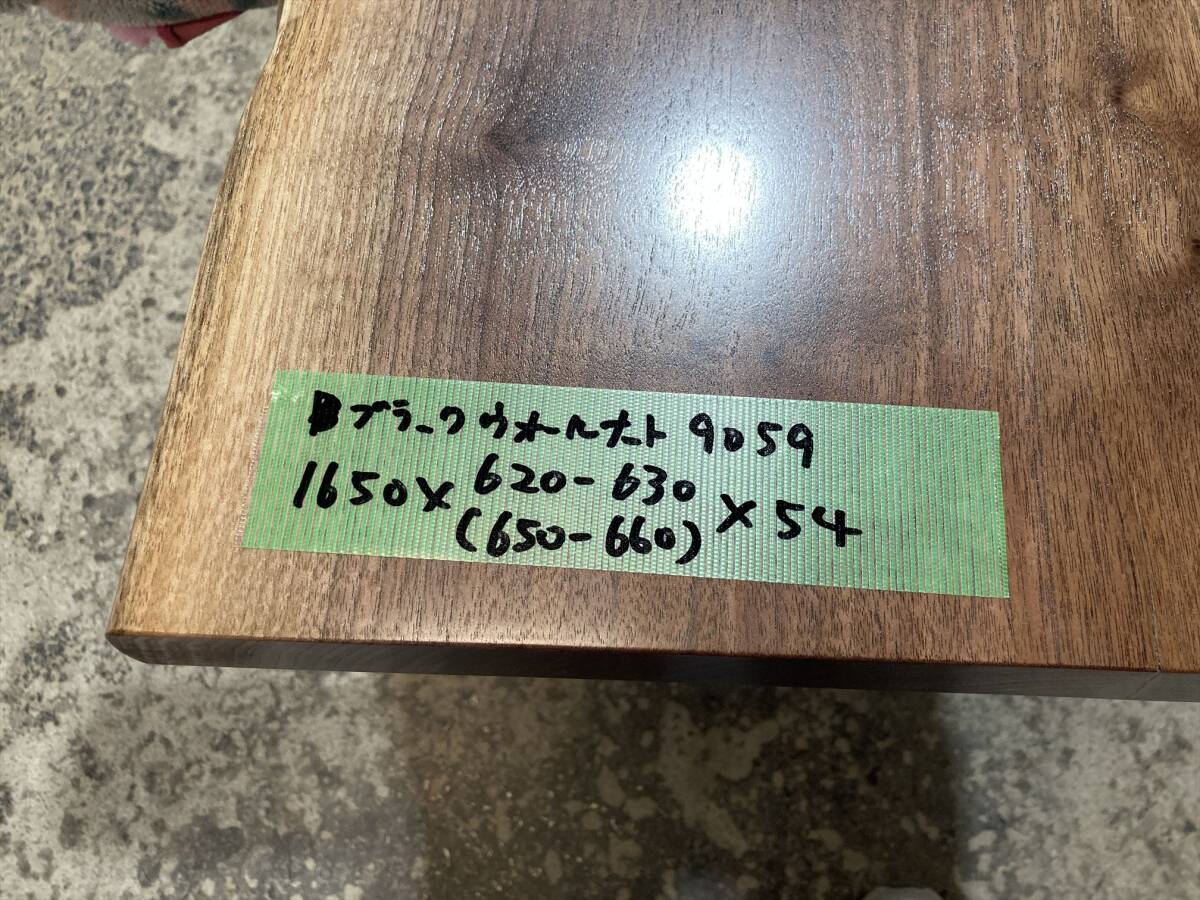 ブラックウォールナット 9059
1650×620-630×54
(650-660)